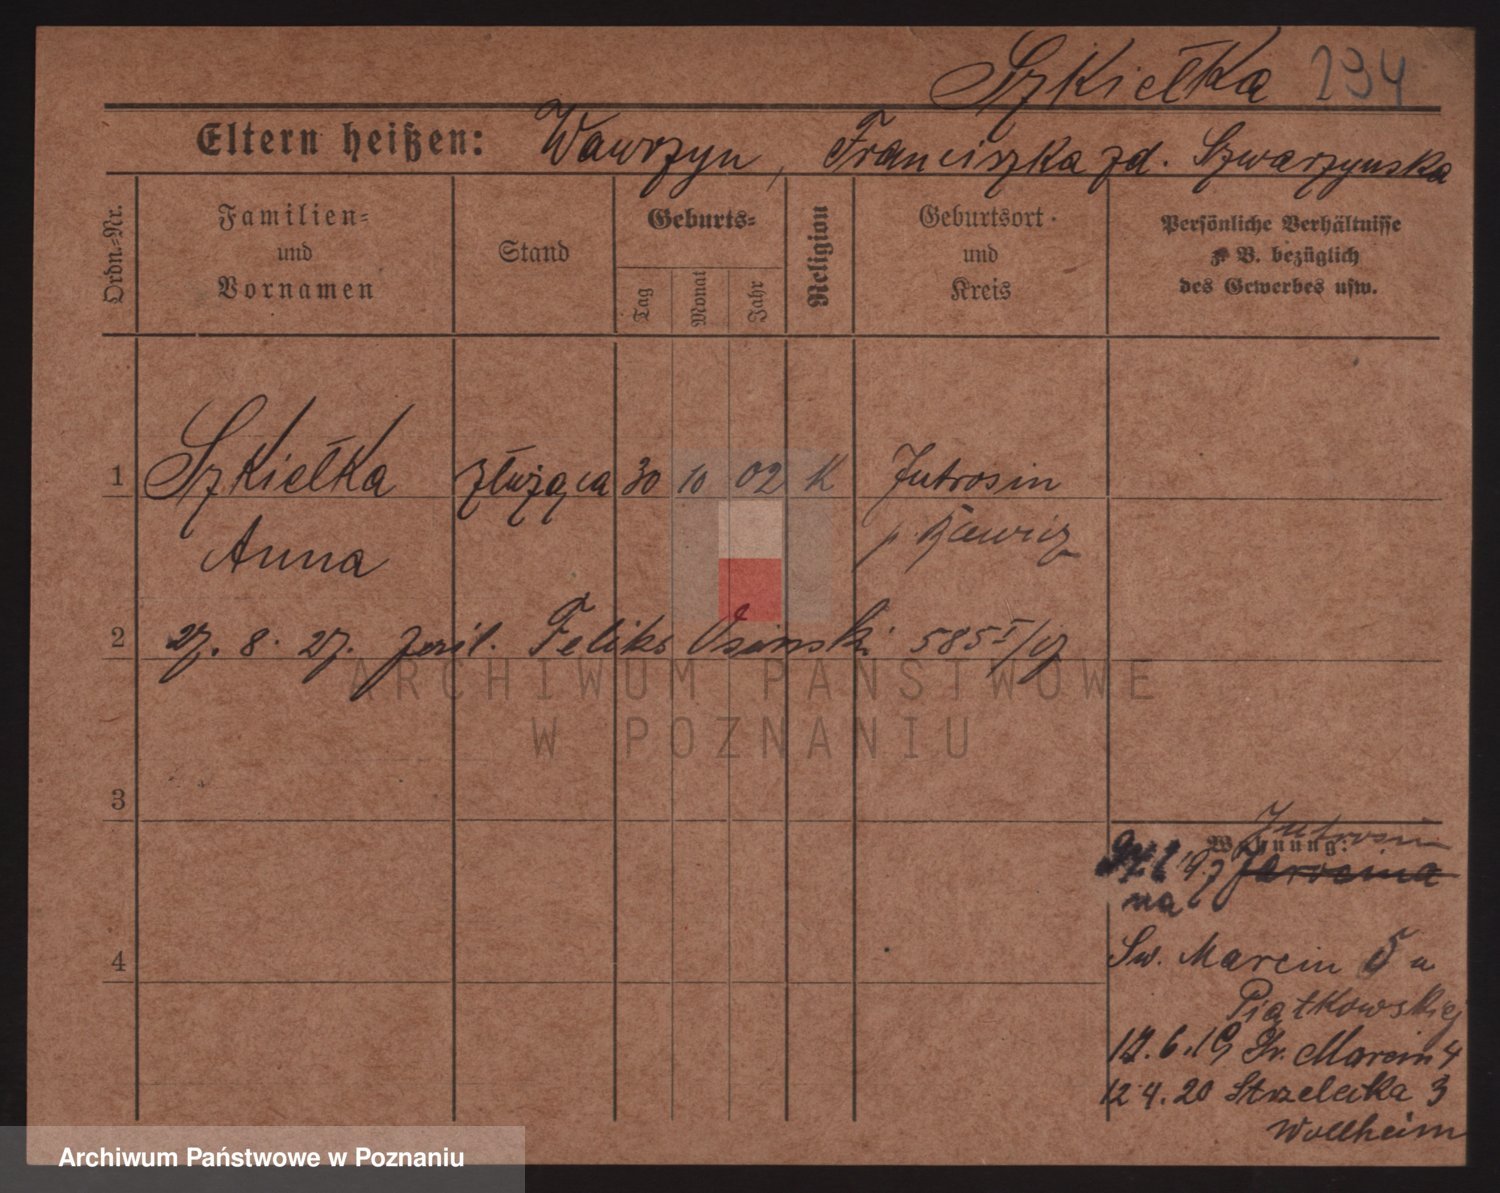 Szkiełka 294
Eltern heißen: Wawrzyn, Franciszka zd. Szwarzynska
Ordn.-Nr.
Familien-
und
Vornamen
Stand
Geburts-
Tag
Monat
Jahr
Religion
Geburtsort
und
Kreis
Persönliche Verhältnisse
z. B. bezüglich
des Gewerbes usw.
1 Szkiełka służąca 30 10 02 K Jutrosin
Anna p
2 27. 8. 27. Feliks Osinski 585 I/
3
4
Wohnung:
Jutrosin
19
na
Sw. Marcin 5 u
Piątkowskiej
12.6.19 Sw. Marcin 4
12 4. 20 Strzelecka 3
Wollheim
ARCHIWUM PAŃSTWOWE
W POZNANIU
Archiwum Państwowe w Poznaniu